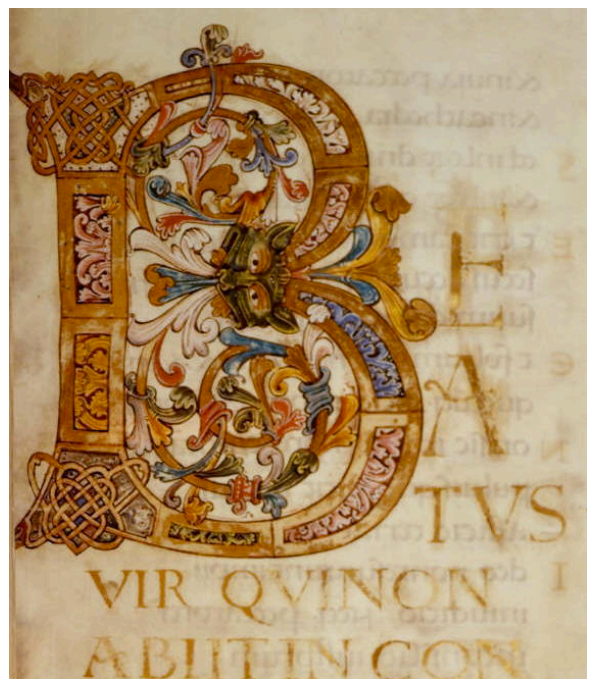 BEATVS
VIR QVI NON
ABIIT IN CON